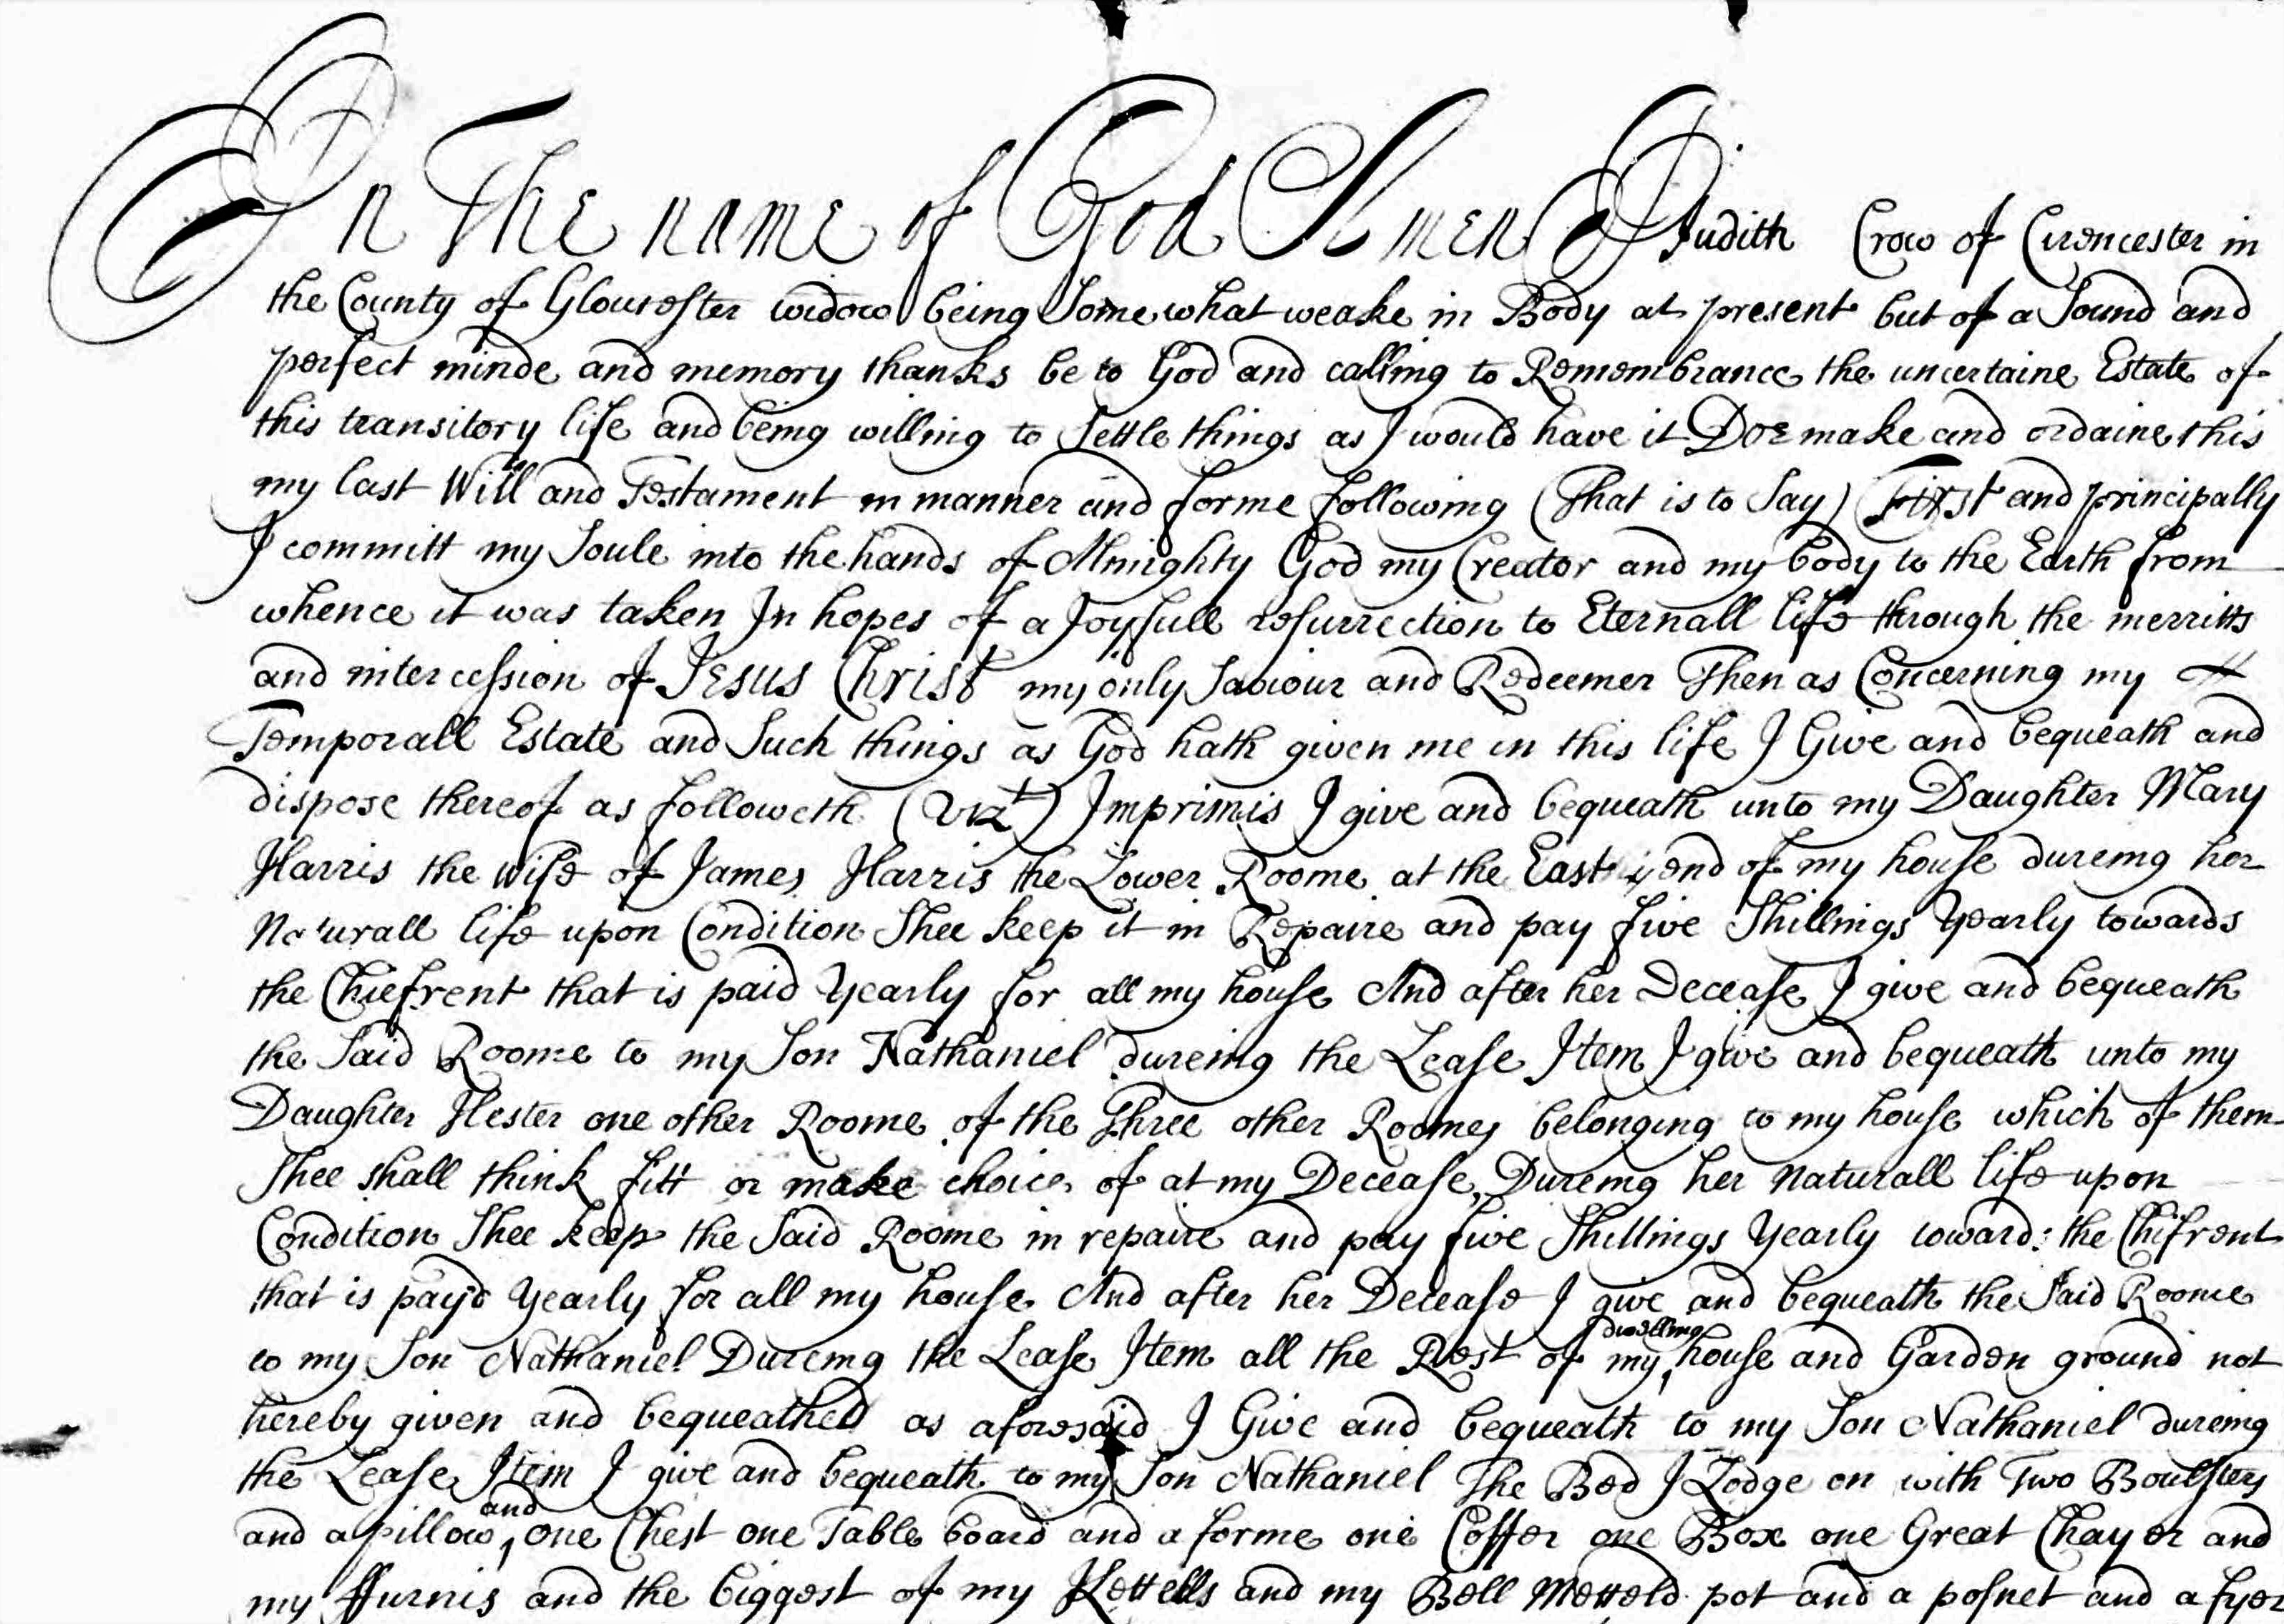 In The name of God Amen I Judith Crow of Cirencester in
the County of Gloucester widow being Somewhat weake in Body at present but of a Sound and
perfect minde and memory thanks be to God and calling to Remembrance the uncertaine Estate of
this transitory life and being willing to Settle things as I would have it Doe make and ordaine this
my last Will and Testament in manner and forme following (That is to Say) First and principally
I committ my Soule into the hands of Almighty God my Creator and my body to the Earth from
whence it was taken In hopes of a Joyfull resurrection to Eternall life through the merritts
and intercession of Jesus Christ my only Saviour and Redeemer Then as Concerning my
Temporall Estate and Such things as God hath given me in this life I Give and bequeath and
dispose thereof as followeth (Vizt) Imprimis I give and bequeath unto my Daughter Mary
Harris the Wife of James Harris the Lower Roome at the East end of my house dureing her
Naturall life upon Condition Shee keep it in Repaire and pay five Shillings Yearly towards
the Chiefrent that is paid Yearly for all my house And after her Decease I give and bequeath
the Said Roome to my Son Nathaniel dureing the Lease Item I give and bequeath unto my
Daughter Hester one other Roome of the Three other Roomes belonging to my house which of them
Shee shall think fitt or make choice of at my Decease, Dureing her Naturall life upon
Condition Shee keep the Said Roome in repaire and pay five Shillings Yearly towards the Chifrent
that is payd Yearly for all my house And after her Decease I give and bequeath the Said Roome
to my Son Nathaniel Dureing the Lease Item all the Rest of my dwelling house and Garden ground not
hereby given and bequeathed as aforesaid I Give and bequeath to my Son Nathaniel dureing
the Lease Item I give and bequeath to my Son Nathaniel The Bed I Lodge on with Two Boulsters
and a pillow and one Chest one Table board and a forme one Coffer one Box one Great Chayer and
my ffurnis and the biggest of my Kettells and my Bell Metteld pot and a posnet and a fyer